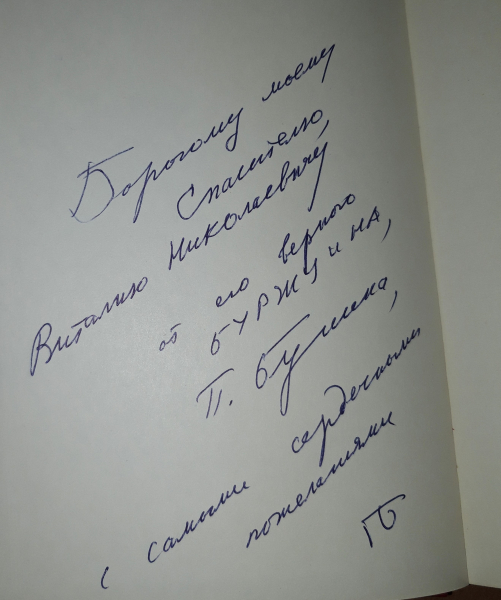 Дорогому моему
Спасителю,
Виталию Николаевичу
от его верного
БУРЖУИНА,
П. Бунина,
с самыми сердечными
пожеланиями
ПБ